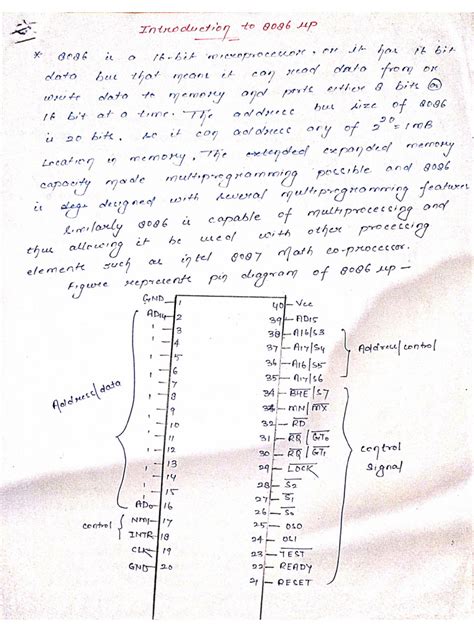 Introduction to 8086 µp
* 8086 is a 16-bit microprocessor. or it has 16 bit
data bus that means it can read data from or
write data to memory and ports either 8 bits or
16 bit at a time. The address bus size of 8086
is 20 bits. so it can address any of 2^20 = 1MB
Location in memory. The extended expanded memory
capacity made multiprogramming possible and 8086
is designed with several multiprogramming features
similarly 8086 is capable of multiprocessing and
thus allowing it be used with other processing
elements such as intel 8087 Math co-processor.
Figure represents pin diagram of 8086 µp -
GND 1 40 Vcc
AD14 2 39 AD15
3 38 A16/S3
4 37 A17/S4
5 36 A16/S5
6 35 A17/S6
Address/control
7 34 B̅H̅E̅/S7
8 33 MN/M̅X̅
9 32 R̅D̅
10 31 R̅Q̅/G̅T̅0
11 30 R̅Q̅/G̅T̅1
12 29 L̅O̅C̅K̅
13 28 S̅2
14 27 S̅1
15 26 S̅0
AD0 16 25 QS0
NMI 17 24 QS1
INTR 18 23 T̅E̅S̅T̅
CLK 19 22 READY
GND 20 21 RESET
Address/data
control
control
signal